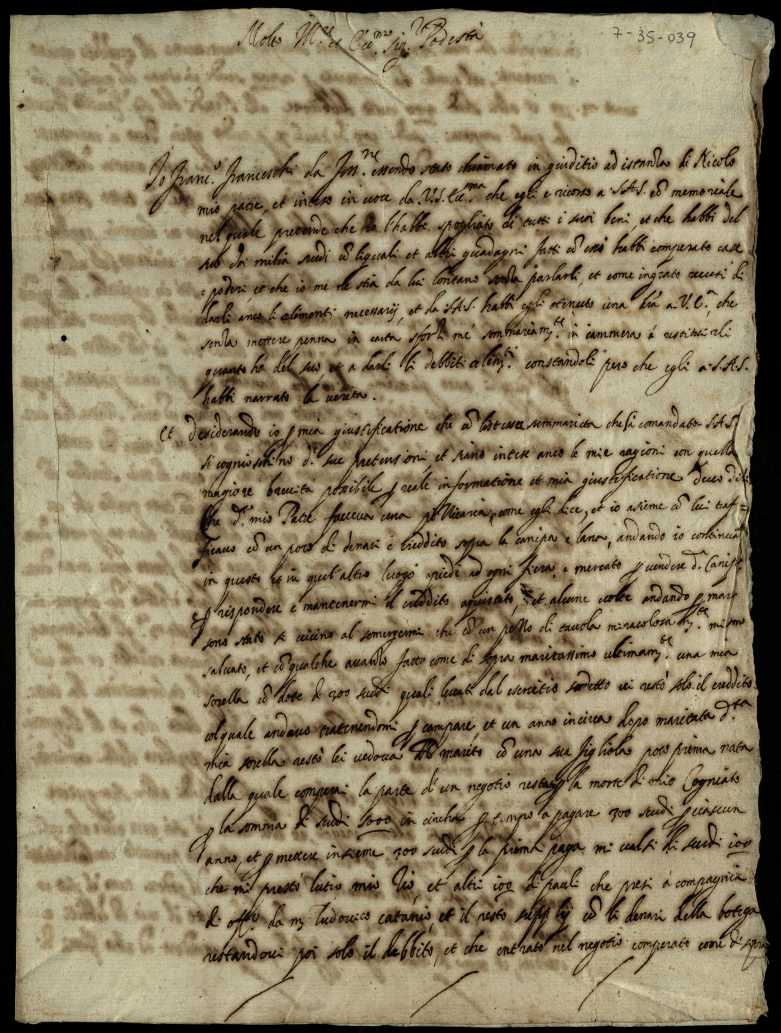 7-35-039
Molto M.re et Ecc.mo Sig.r Podestà
Io Franc.o Franceschi da essendo stato chiamato in giuditio ad istanza di Nicolo
mio patre, et inteso in voce da V.S. Ecc.ma che egli è ricorso a S.A.S. cō memoriale
nel quale pretende che io l'habbi spogliato di tutti i suoi beni et che habbi del
suo milia scudi cō liquali et altri guadagni fatti cō essi habbi comperato case
e poderi, et che io me ne stia da lui lontano senza parlarli, et come ingrato recusi di
darli anco li alimenti necessarij, et da S.A.S. habbi egli otenuto una a V.E. che
senza mettere penna in carta sforzi me sommariam.te in cammera à restituirli
quanto ha del suo, et a darli li debbiti alim.ti constandoli pero che egli a S.A.S.
habbi narrato la verita.
Et desiderando io ꝑ mia giustificatione che cō sommarieta che li comandato S.A.S.
si cognoschino di sue pretensioni, et siano intese anco le mie ragioni con quella
magiore brevità possibile ꝑ reale informatione et mia giustificatione devo
che d.o mio Patre faceva una come egli dice, et io asieme cō lui traf=
ficavo cō un poco di denari e creddito sopra la canipa e lana, andando io continua
in questo et in quel'altro luogo à piedi ad ogni fiera, e mercato ꝑ vendere d.a Canipa
et ꝑ respondere e mantenermi il creddito aquistato, et alcune volte andando ꝑ mare
sono stato si vicino al somergermi che cō un pezzo di tavola miracolosam.te mi sono
salvato, et cō qualche avanzo fatto come di sopra maritassimo ultimam.te una mia
sorella cō dote di 300 scudi quali levati dal esercitio sodetto vi restò solo il creddito
col quale andavo tratenendomi ꝑ compare, et un anno incirca dopo maritata d.ta
mia sorella restò lei vedova di marito cō una sua figliola poco prima nata
dalla quale comperai la parte d'un negotio restato ꝑ la morte di mio Cogniato
ꝑ la somma di scudi in circha ꝑ tempo a pagare 300 scudi ꝑ ciascun
anno, et ꝑ mettere insieme 300 scudi ꝑ la prima paga mi valsi di scudi 100
che mi prestò lutio mio Zio, et altri 100 di pauli che presi à compagnia
di off.o da m Ludovico catanio, et il resto supplij cō li denari della botega
restandovi poi solo il debbito, et che entrato nel negotio comperato come di sopra